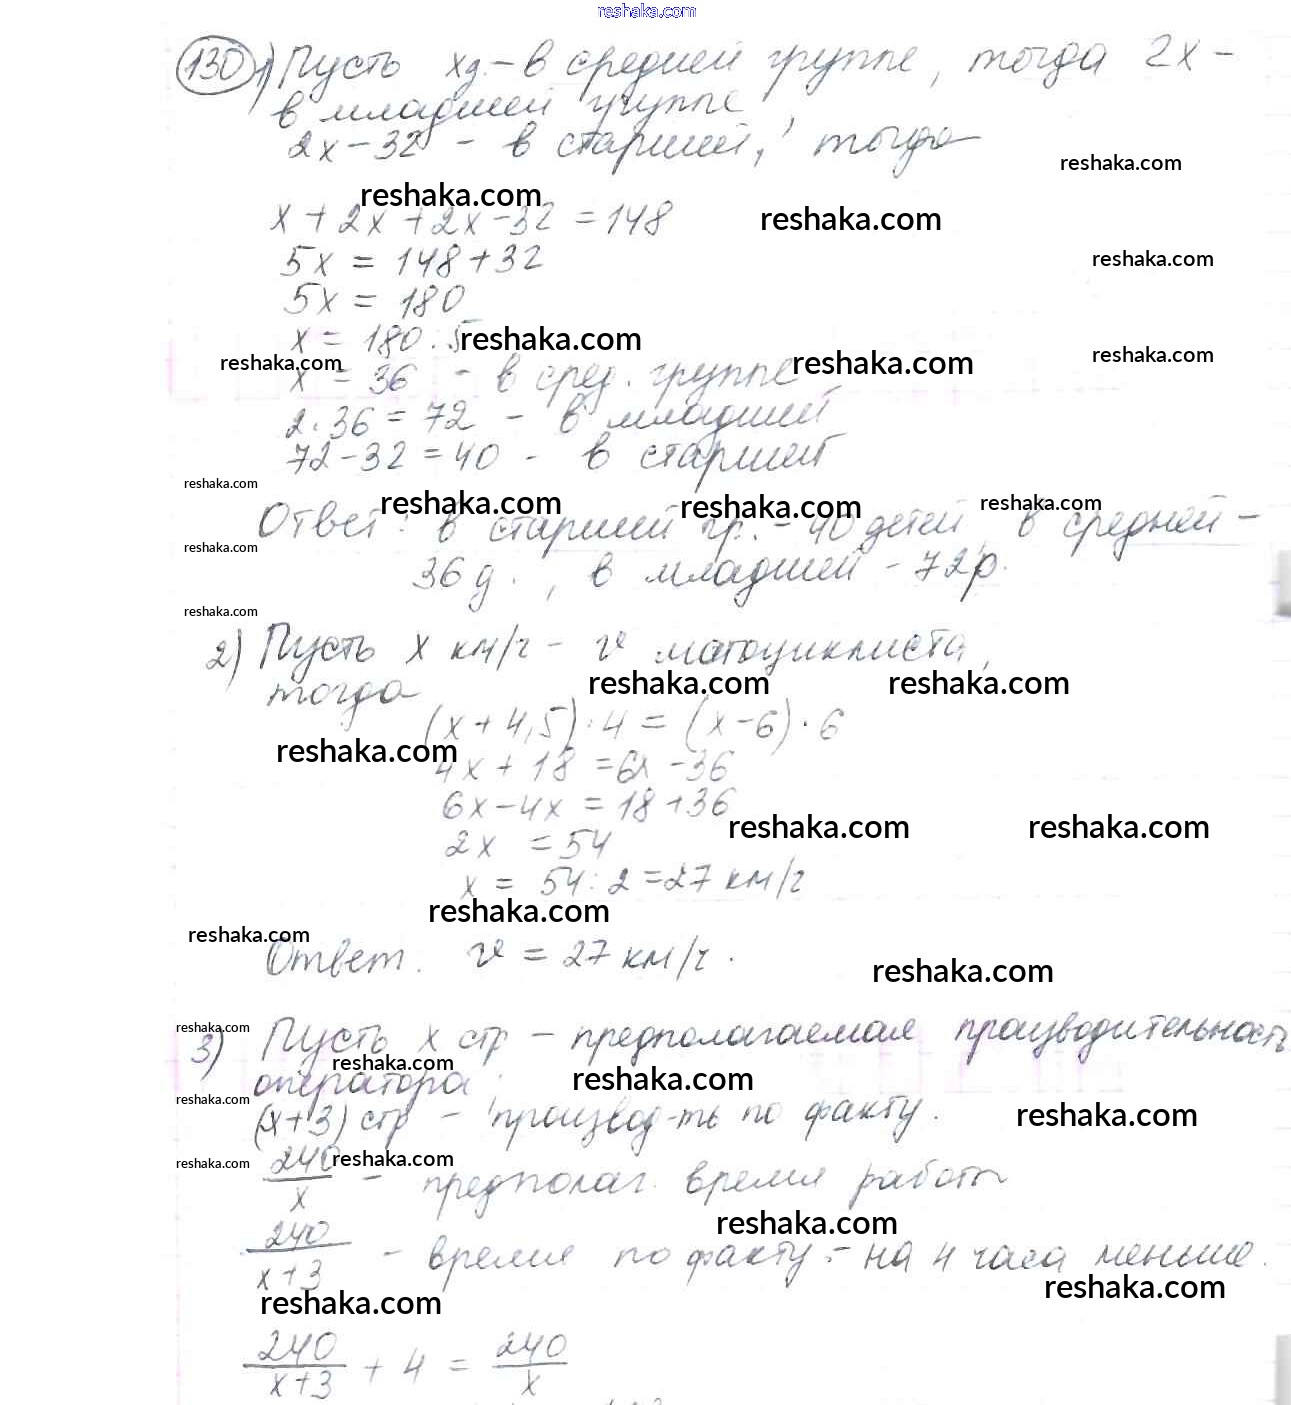 reshaka.com
130 1) Пусть x д. – в средней группе, тогда 2x –
в младшей группе
2x – 32 – в старшей, тогда
reshaka.com
reshaka.com
x + 2x + 2x – 32 = 148
reshaka.com
5x = 148 + 32
reshaka.com
5x = 180
x = 180 : 5
reshaka.com
reshaka.com
reshaka.com
reshaka.com
x = 36 – в сред. группе
2 · 36 = 72 – в младшей
72 – 32 = 40 – в старшей
reshaka.com
reshaka.com
reshaka.com
reshaka.com
Ответ: в старшей гр. – 40 детей, в средней –
reshaka.com
36 д., в младшей – 72 р.
reshaka.com
2) Пусть x км/ч – v мотоциклиста,
тогда
reshaka.com
reshaka.com
(x + 4,5) · 4 = (x – 6) · 6
reshaka.com
4x + 18 = 6x – 36
6x – 4x = 18 + 36
reshaka.com
reshaka.com
2x = 54
x = 54 : 2 = 27 км/ч
reshaka.com
reshaka.com
Ответ. v = 27 км/ч.
reshaka.com
reshaka.com
3) Пусть x стр – предполагаемая производительность
reshaka.com
оператора
reshaka.com
reshaka.com
(x + 3) стр – производ-ть по факту.
reshaka.com
reshaka.com
reshaka.com
240/x – предполаг. время работы
reshaka.com
240/(x+3) – время по факту – на 4 часа меньше.
reshaka.com
reshaka.com
240/(x+3) + 4 = 240/x